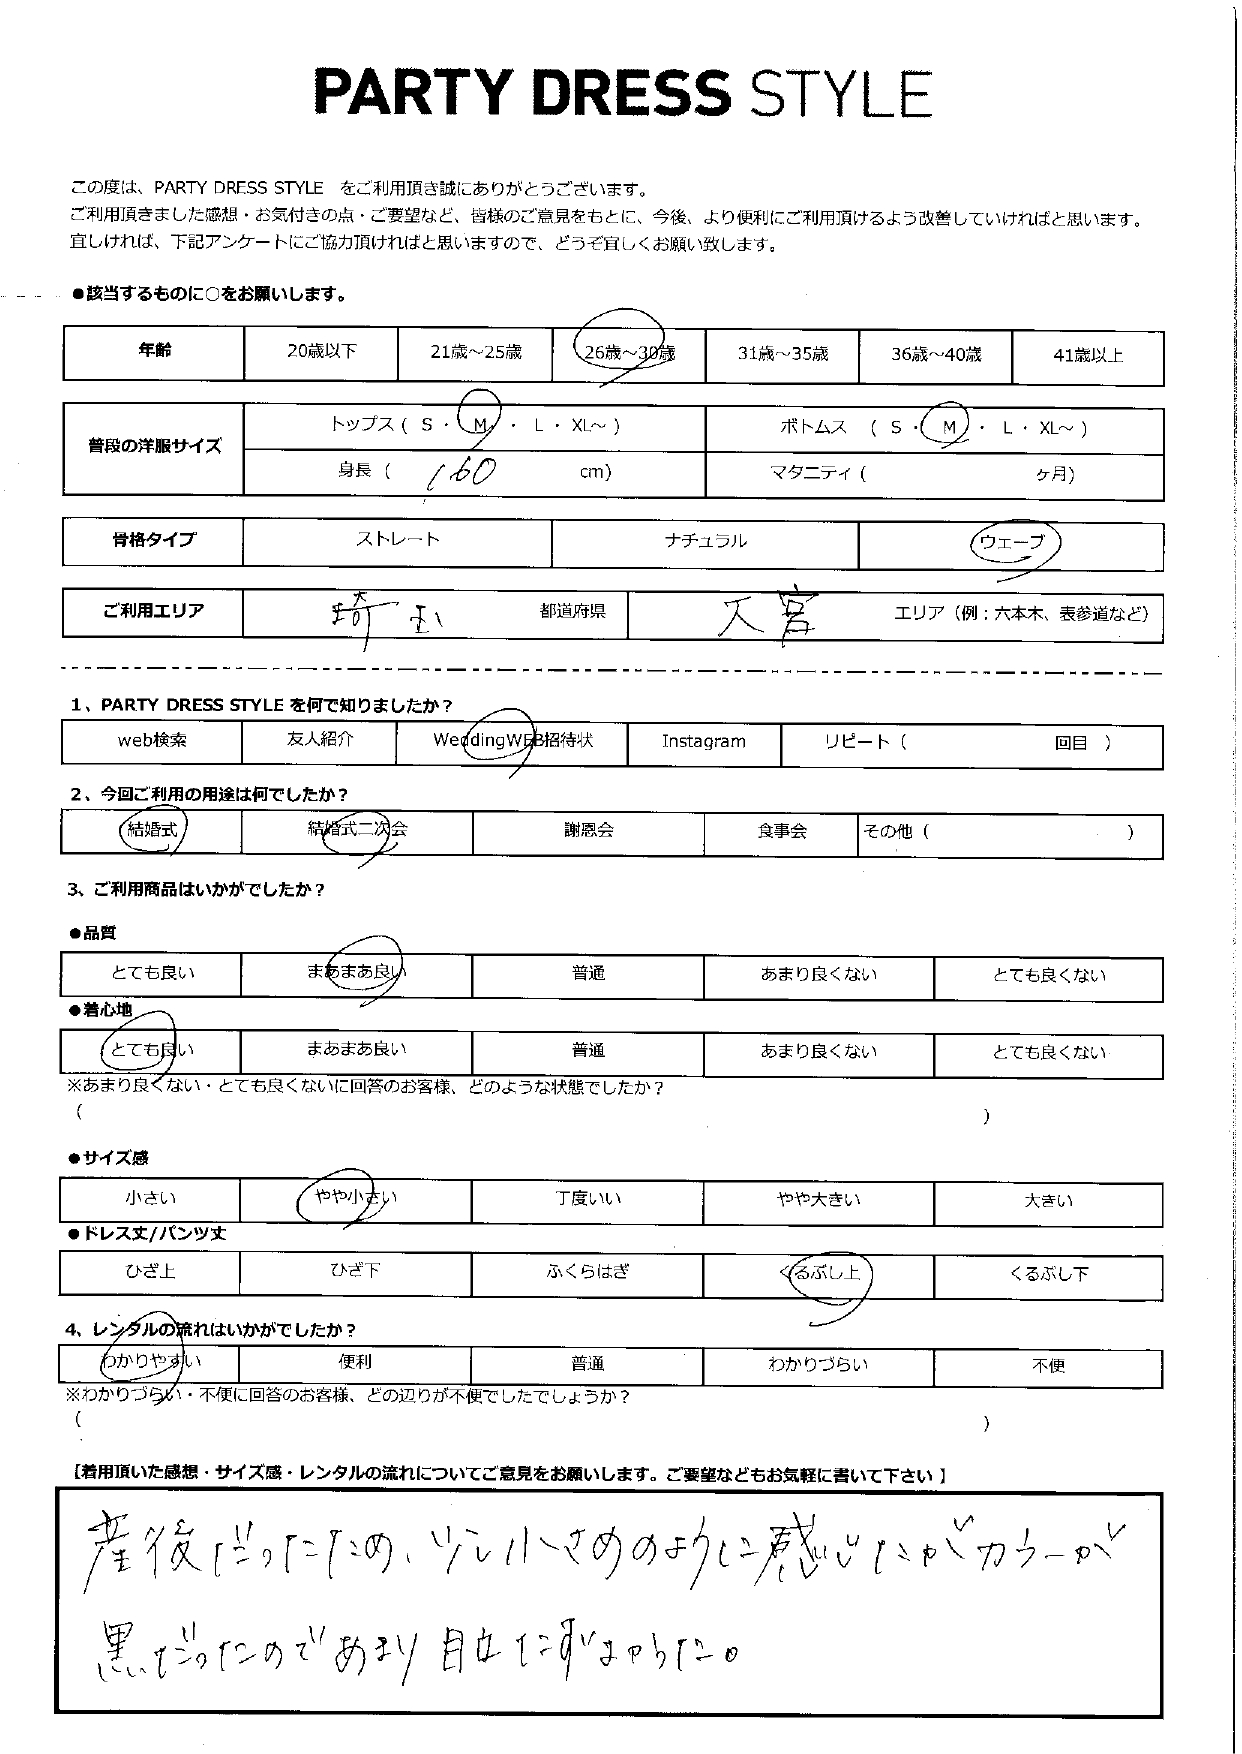 PARTY DRESS STYLE
この度は、PARTY DRESS STYLE をご利用頂き誠にありがとうございます。
ご利用頂きました感想・お気付きの点・ご要望など、皆様のご意見をもとに、今後、より便利にご利用頂けるよう改善していければと思います。
宜しければ、下記アンケートにご協力頂ければと思いますので、どうぞ宜しくお願い致します。
●該当するものに○をお願いします。
年齢 20歳以下 21歳～25歳 26歳～30歳 31歳～35歳 36歳～40歳 41歳以上
普段の洋服サイズ トップス ( S ・ M ・ L ・ XL～ ) ボトムス ( S ・ M ・ L ・ XL～ )
身長 ( 160 cm) マタニティ ( ヶ月)
骨格タイプ ストレート ナチュラル ウェーブ
ご利用エリア 埼玉 都道府県 大宮 エリア (例：六本木、表参道など)
1、PARTY DRESS STYLE を何で知りましたか？
web検索 友人紹介 WeddingWEB招待状 Instagram リピート ( 回目 )
2、今回ご利用の用途は何でしたか？
結婚式 結婚式二次会 謝恩会 食事会 その他 ( )
3、ご利用商品はいかがでしたか？
●品質
とても良い まあまあ良い 普通 あまり良くない とても良くない
●着心地
とても良い まあまあ良い 普通 あまり良くない とても良くない
※あまり良くない・とても良くないに回答のお客様、どのような状態でしたか？
( )
●サイズ感
小さい やや小さい 丁度いい やや大きい 大きい
●ドレス丈/パンツ丈
ひざ上 ひざ下 ふくらはぎ くるぶし上 くるぶし下
4、レンタルの流れはいかがでしたか？
わかりやすい 便利 普通 わかりづらい 不便
※わかりづらい・不便に回答のお客様、どの辺りが不便でしたでしょうか？
( )
【着用頂いた感想・サイズ感・レンタルの流れについてご意見をお願いします。ご要望などもお気軽に書いて下さい 】
産後だったため、少し小さめのように感じたがカラーが
黒だったのであまり目立たずよかった。